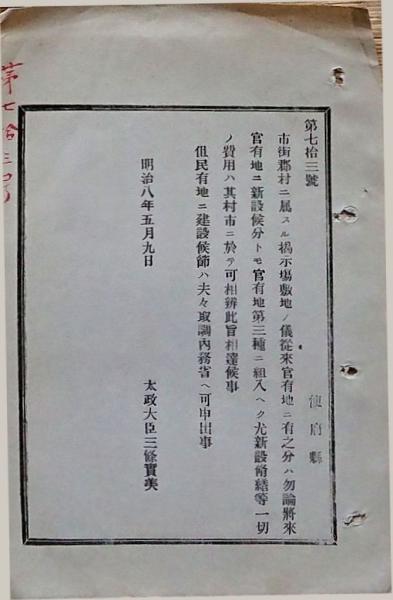 第七拾三號
第七拾三號
使府縣
市街郡村ニ属スル掲示場敷地ノ儀従來官有地ニ有之分ハ勿論將來
官有地ニ新設候分トモ官有地第三種ニ組入ヘク尤新設脩繕等一切
ノ費用ハ其村市ニ於テ可相辨此旨相達候事
但民有地ニ建設候節ハ夫々取調內務省ヘ可申出事
明治八年五月九日
太政大臣三條實美